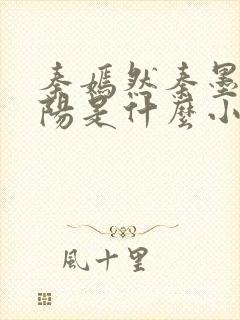 秦嫣然秦墨
陽是什麼小
風十里